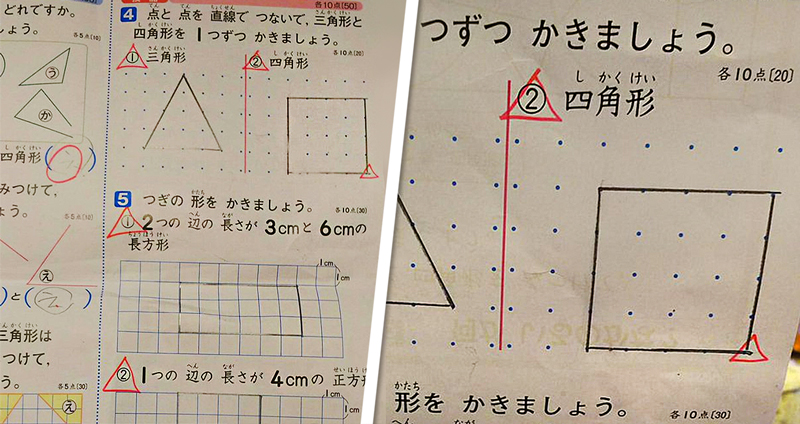 どれですか。
しょう。
各5点[10]
う
か
四角形( )
みつけて、
ょう。
各5点[10]
え
)と( )
三角形は
つけて、
う。
各5点[30]
え
各10点[50]
4 点と 点を 直線で つないで、三角形と
四角形を 1つずつ かきましょう。
各10点[20]
① 三角形
② 四角形
5 つぎの 形を かきましょう。
各10点[30]
① 2つの 辺の 長さが 3cmと 6cmの
長方形
1cm
1cm
② 1つの 辺の 長さが 4cmの 正方形
1cm
1cm
つずつ かきましょう。
各10点[20]
② 四角形
形を かきましょう。
各10点[30]